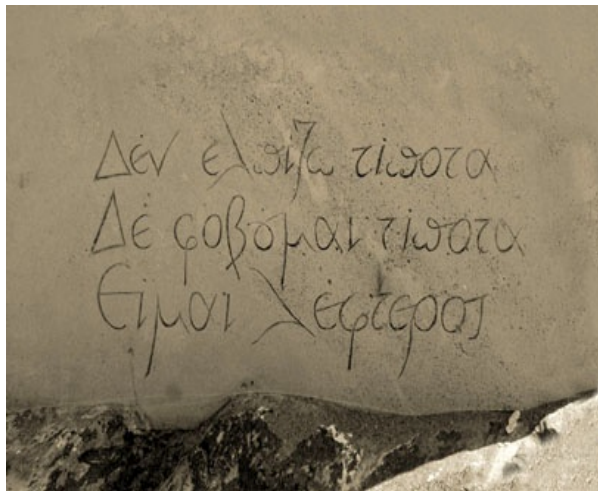 Δέν ελπίζω τίποτα
Δέ φοβσμαι τίποτα
Είμαι λέφτερος